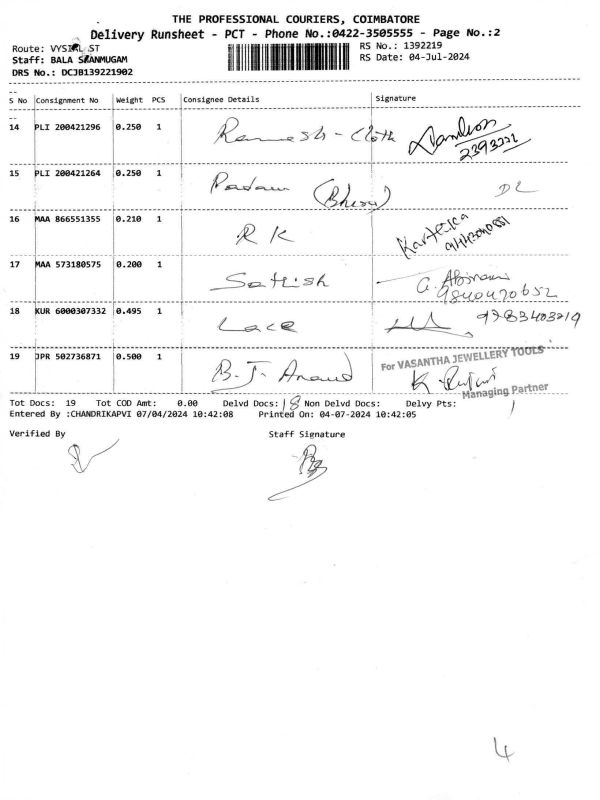 THE PROFESSIONAL COURIERS, COIMBATORE
Delivery Runsheet - PCT - Phone No.:0422-3505555 - Page No.:2
Route: VYSIAL ST
RS No.: 1392219
Staff: BALA SHANMUGAM
RS Date: 04-Jul-2024
DRS No.: DCJB139221902
S No Consignment No Weight PCS Consignee Details Signature
14 PLI 200421296 0.250 1 Ramesh - Cloth
2393222
15 PLI 200421264 0.250 1 Padam (Bhesu) DL
16 MAA 866551355 0.210 1 R K Karteica
17 MAA 573180575 0.200 1 Sathish
9840470652
18 KUR 6000307332 0.495 1 Lace 9783403219
19 JPR 502736871 0.500 1 B. J. Anand
For VASANTHA JEWELLERY TOOLS
Managing Partner
Tot Docs: 19 Tot COD Amt: 0.00 Delvd Docs: 18 Non Delvd Docs: 1 Delvy Pts:
Entered By :CHANDRIKAPVI 07/04/2024 10:42:08 Printed On: 04-07-2024 10:42:05
Verified By Staff Signature
4